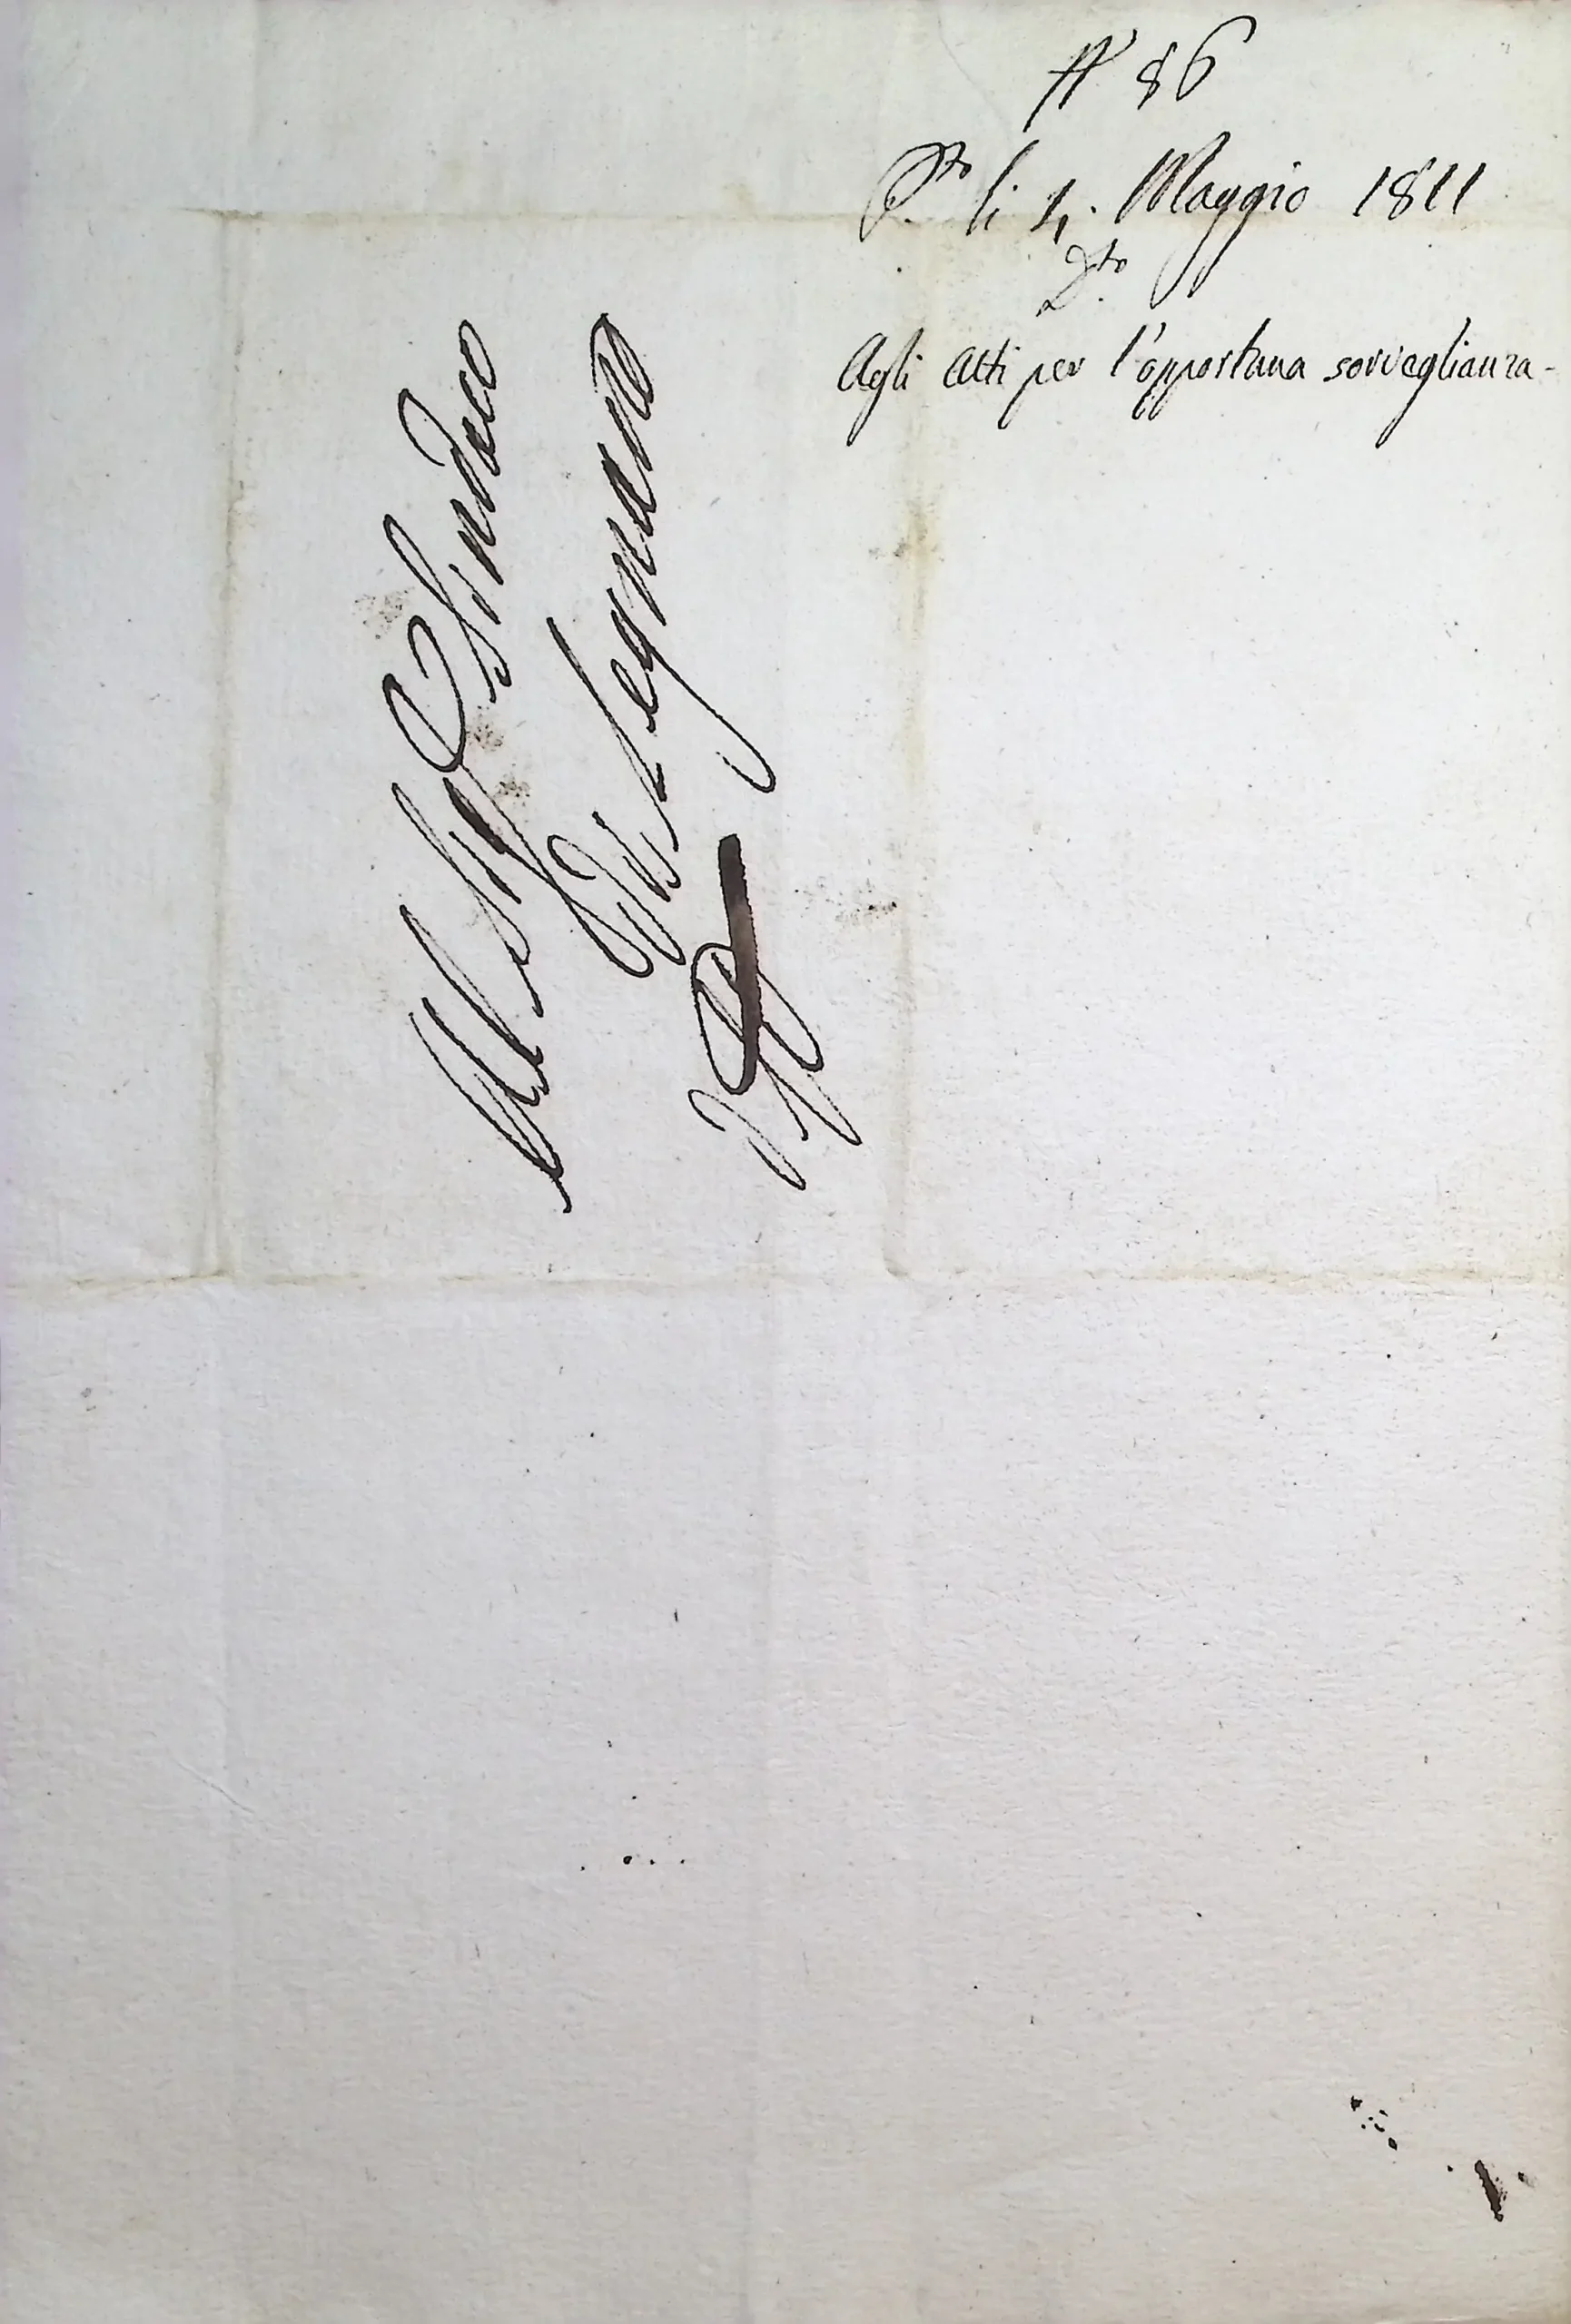 N° 86
P.to li 1. Maggio 1811
D.to
Agli Atti per l'opportuna sorveglianza -
Al Sig.r Sindaco
Di Legnano